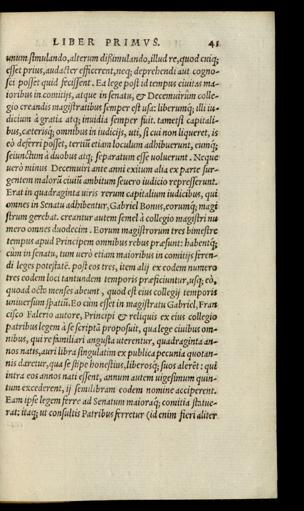 LIBER PRIMVS. 41
unum stimulando, alterum dissimulando, illud re, quod cuiq;
esset prius, audacter efficerent, neq; deprehendi aut cogno-
sci posset quid fecissent. Ea lege post id tempus ciuitas ma-
ioribus in comitijs, atque in senatu, & Decemuirûm colle-
gio creandis magistratibus semper est usa: liberumq; illi iu-
dicium à gratia atq; inuidia semper fuit. tametsi capitali-
bus, cæterisq; omnibus in iudicijs, uti, si cui non liqueret, is
eò deferri posset, tertiũ etiam loculum adhibuerunt, eumq;
seiunctum à duobus atq; separatum esse uoluerunt. Neque
uerò minus Decemuiri ante anni exitum alia ex parte sur-
gentem malorũ ciuiũ ambitum seuero iudicio represserunt.
Erat in quadraginta uiris rerum capitalium iudicibus, qui
omnes in Senatu adhibentur, Gabriel Bonus, eorumq; magi
strum gerebat. creantur autem semel à collegio magistri nu
mero omnes duodecim. Eorum magistrorum tres bimestre
tempus apud Principem omnibus rebus præsunt: habentq;
cùm in senatu, tum uerò etiam maioribus in comitijs feren-
di leges potestatē. post eos tres, item alij ex eodem numero
tres eodem loci tantundem temporis præficiuntur, usq; eò,
quoad octo menses abeunt, quod est eius collegij temporis
uniuersum spatiũ. Eo cùm esset in magistratu Gabriel, Fran
cisco Falerio autore, Principi & reliquis ex eius collegio
patribus legem à se scriptā proposuit, qua lege ciuibus om-
nibus, qui re familiari angusta uterentur, quadraginta an-
nos natis, auri libra singulatim ex publica pecunia quotan-
nis daretur, qua se stipe honestius, liberosq; suos alerēt: qui
intra eos annos nati essent, annum autem uigesimum quin-
tum excederent, ij semilibram eodem nomine acciperent.
Eam ipse legem ferre ad Senatum maioraq; comitia statue-
rat: itaq; ut consultis Patribus ferretur (id enim fieri aliter